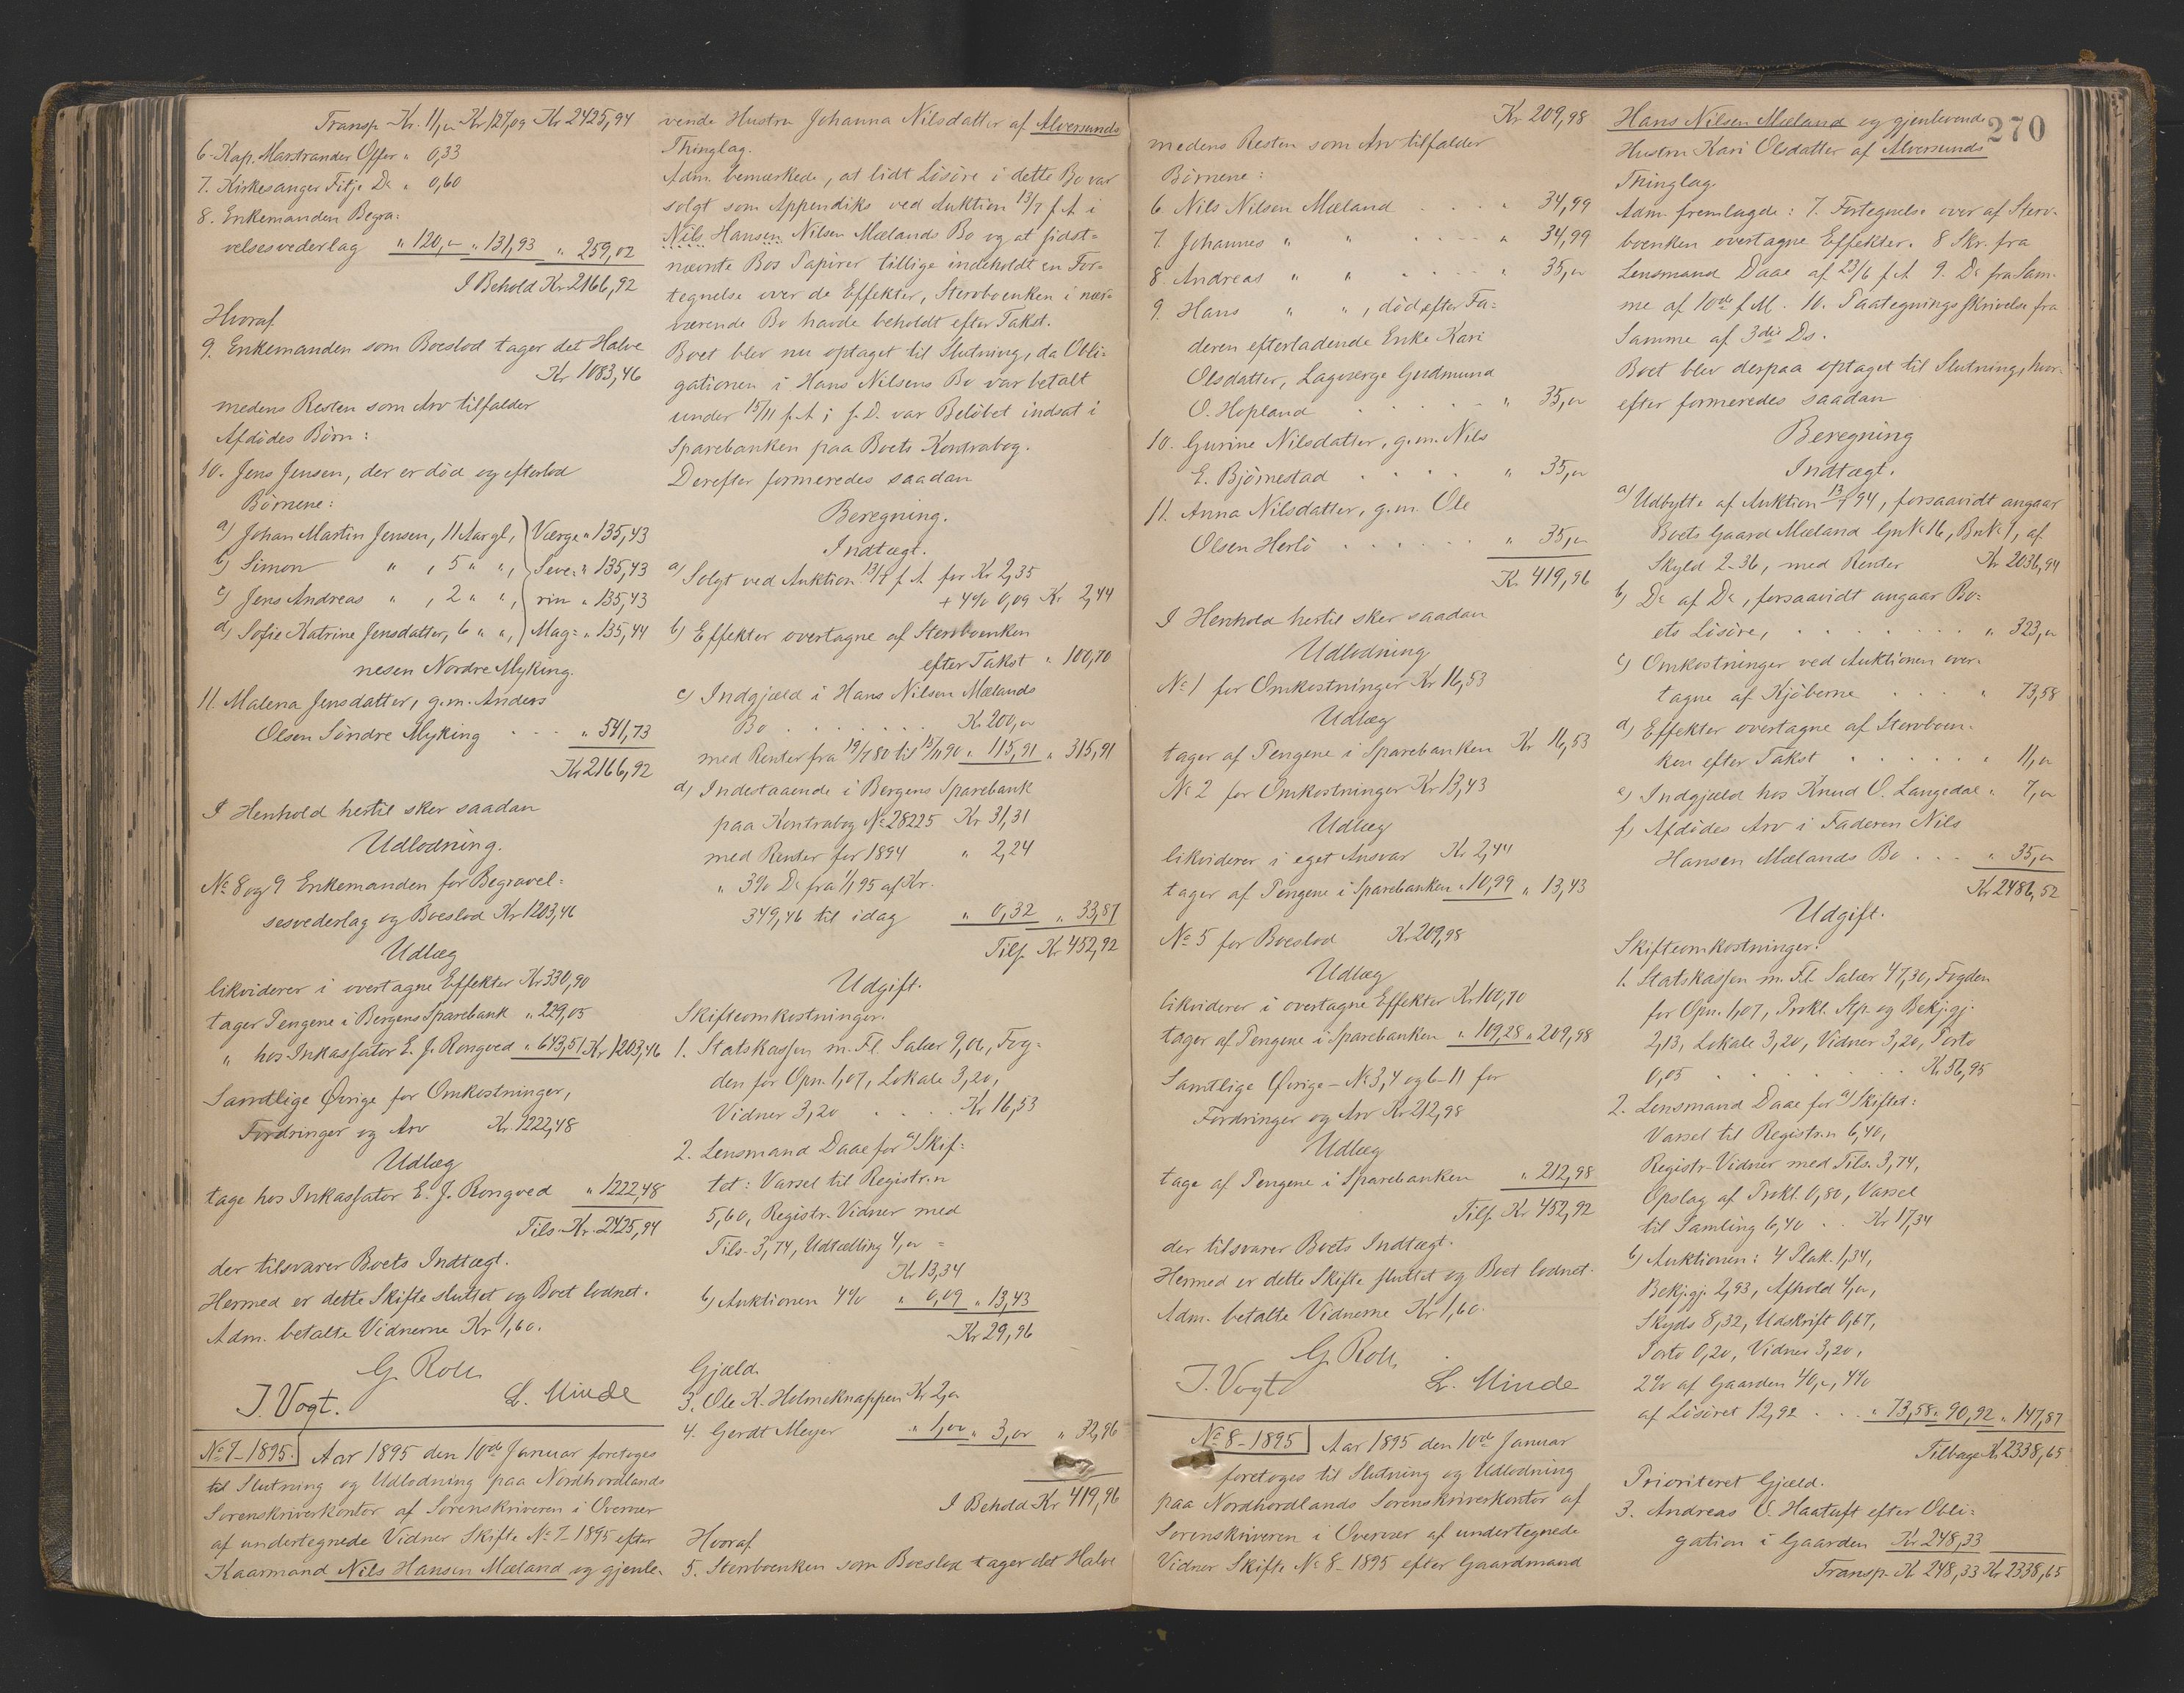 Transp. Kr. 11,00 Kr 127,09 Kr 2425,94
6. Kap. Marstrander Offer " 0,33
7. Kirkesanger Fitje Do " 0,60
8. Enkemanden Begra-
velsesvederlag " 120,00 " 131,93 " 259,02
I Behold Kr 2166,92
Hvoraf
9. Enkemanden som Boeslod tager det Halve
Kr 1083,46
medens Resten som Arv tilfalder
Afdødes Børn:
10. Jens Jensen, der er død og efterlod
Børnene:
a) Johan Martin Jensen, 11 Aar gl, Værge " 135,43
b) Simon " , 5 " ", Seve- " 135,43
c) Jens Andreas " , 2 " ", rin " 135,43
d) Sofie Katrine Jensdatter, 6 " ", Mag- " 135,44
nesen Nordre Myking.
11. Malena Jensdatter, g.m. Anders
Olsen Søndre Myking . . . " 541,73
Kr 2166,92
I Henhold hertil sker saadan
Udlodning.
No 8 og 9 Enkemanden for Begravel-
sesvederlag og Boeslod Kr 1203,46
Udlæg
likviderer i overtagne Effekter Kr 330,90
tager Pengene i Bergens Sparebank " 229,05
" hos Inkassator E. J. Rongved " 643,51 Kr 1203,46
Samtlige Øvrige for Omkostninger,
Fordringer og Arv Kr. 1222,48
Udlæg
tage hos Inkassator E. J. Rongved " 1222,48
Tils. Kr. 2425,94
der tilsvarer Boets Indtægt.
Hermed er dette Skifte sluttet og Boet lodnet.
Adm. betalte Vidnerne Kr 1,60.
G. Roll
J. Vogt. L. Minde
No 7-1895. Aar 1895 den 10de Januar foretoges
til Slutning og Udlodning paa Nordhordlands
Sorenskriverkontor af Sorenskriveren i Overvær
af undertegnede Vidner Skifte No 7-1895 efter
Kaarmand Nils Hansen Mæland og gjenle-
vende Hustru Johanna Nilsdatter af Alversunds
Thinglag.
Adm. bemærkede, at lidt Løsøre i dette Bo var
solgt som Appendiks ved Auktion 13/7 f. A. i
Nils Hansen Nilsen Mælands Bo og at sidst-
nævnte Bos Papirer tillige indeholdt en For-
tegnelse over de Effekter, Stervboenken i nær-
værende Bo havde beholdt efter Takst.
Boet blev nu optaget til Slutning, da Obli-
gationen i Hans Nilsens Bo var betalt
under 15/11 f. A.; s. D. var Beløbet indsat i
Sparebanken paa Boets Kontrabog.
Derefter formeredes saadan
Beregning.
Indtægt.
a) Solgt ved Auktion 13/7 f. A. for Kr 2,35
+ 4% 0,09 Kr 2,44
b) Effekter overtagne af Stervboenken
efter Takst " 100,70
c) Indgjæld i Hans Nilsen Mælands
Bo . . . . . . Kr. 200,00
med Renter fra 19/7 80 til 15/11 90 " 115,91 " 315,91
d) Indestaaende i Bergens Sparebank
paa Kontrabog No 28225 Kr 31,31
med Renter for 1894 " 2,24
" 3% Do fra 1/1 95 af Kr.
349,46 til idag " 0,32 " 33,87
Tils. Kr 452,92
Udgift.
Skifteomkostninger.
1. Statskassen m. Fl. Salær 9,06, Fog-
den for Opn. 1,07, Lokale 3,20,
Vidner 3,20 . . . Kr 16,53
2. Lensmand Daae for a) Skif-
tet: Varsel til Registr.n
5,60, Registr. Vidner med
Tils. 3,74, Udtælling 4,00 =
Kr 13,34
b) Auktionen 4% " 0,09 " 13,43
Kr 29,96
Gjæld.
3. Ole K. Holmeknappen Kr 2,00
4. Gerdt Meyer " 1,00 " 3,00 " 32,96
I Behold Kr 419,96
Hvoraf
5. Stervboenken som Boeslod tager det Halve
Kr 209,98
medens Resten som Arv tilfalder
Børnene:
6. Nils Nilsen Mæland . . . . " 34,99
7. Johannes " " . . . . " 34,99
8. Andreas " " . . . . " 35,00
9. Hans " " , død efter Fa-
deren efterladende Enke Kari
Olsdatter, Lagværge Gudmund
O. Hopland . . . . . " 35,00
10. Gurine Nilsdatter, g.m. Nils
E. Bjørnestad . . . . " 35,00
11. Anna Nilsdatter, g.m. Ole
Olsen Herlø . . . . . . " 35,00
Kr. 419,96
I Henhold hertil sker saadan
Udlodning
No 1 for Omkostninger Kr 16,53
Udlæg
tager af Pengene i Sparebanken Kr 16,53
No 2 for Omkostninger Kr 13,43
Udlæg
likviderer i eget Ansvar Kr 2,44
tager af Pengene i Sparebanken " 10,99 " 13,43
No 5 for Boeslod Kr 209,98
Udlæg
likviderer i overtagne Effekter Kr 100,70
tager af Pengene i Sparebanken " 109,28 " 209,98
Samtlige Øvrige - No 3, 4 og 6-11 for
Fordringer og Arv Kr 212,98
Udlæg
tage af Pengene i Sparebanken " 212,98
Tils. Kr 452,92
der tilsvarer Boets Indtægt.
Hermed er dette Skifte sluttet og Boet lodnet.
Adm. betalte Vidnerne Kr 1,60.
G. Roll
J. Vogt L. Minde
No 8-1895 Aar 1895 den 10de Januar
foretoges til Slutning og Udlodning
paa Nordhordlands Sorenskriverkontor af
Sorenskriveren i Overvær af undertegnede
Vidner Skifte No 8-1895 efter Gaardmand
270
Hans Nilsen Mæland og gjenlevende
Hustru Kari Olsdatter af Alversunds
Thinglag.
Adm. fremlagde: 7. Fortegnelse over af Sterv-
boenken overtagne Effekter. 8 Skr. fra
Lensmand Daae af 23/6 f. A. 9. Do fra Sam-
me af 10de f. M. 10. Paategningsskrivelse fra
Samme af 3die Ds.
Boet blev derpaa optaget til Slutning, hvor-
efter formeredes saadan
Beregning
Indtægt.
a) Udbytte af Auktion 13/7 94, forsaavidt angaar
Boets Gaard Mæland Gn No 16, Bn No 1, af
Skyld 2-36, med Renter Kr 2036,94
b) Do af Do, forsaavidt angaar Bo-
ets Løsøre, . . . . . . . " 323,00
c) Omkostninger ved Auktionen over-
tagne af Kjøberne . . . " 73,58
d) Effekter overtagne af Stervboen-
ken efter Takst . . . . . " 11,00
e) Indgjæld hos Knud O. Langedal " 7,00
f) Afdødes Arv i Faderen Nils
Hansen Mælands Bo . . . " 35,00
Kr 2486,52
Udgift.
Skifteomkostninger:
1. Statskassen m. Fl. Salær 47,30, Fogden
for Opn. 1,07, Prokl. Stp. og Bekj.gj.
2,13, Lokale 3,20, Vidner 3,20, Porto
0,05 . . . . . . . Kr. 56,95
2. Lensmand Daae for a) Skiftet:
Varsel til Registr.n 6,40,
Registr. Vidner med Tils. 3,74,
Opslag af Prokl. 0,80, Varsel
til Samling 6,40 . . Kr 17,34
b) Auktionen: 4 Plak. 1,34,
Bekj.gj. 2,93, Afhold 4,00,
Skyds 8,32, Udskrift 0,67,
Porto 0,20, Vidner 3,20,
2% af Gaarden 40,00, 4%
af Løsøret 12,92 . . . " 73,58 " 90,92 " 147,87
Tilbage Kr 2338,65
Prioriteret Gjæld.
3. Andreas O. Haatuft efter Obli-
gation i Gaarden Kr 248,33
Transp. Kr 248,33 Kr 2338,65